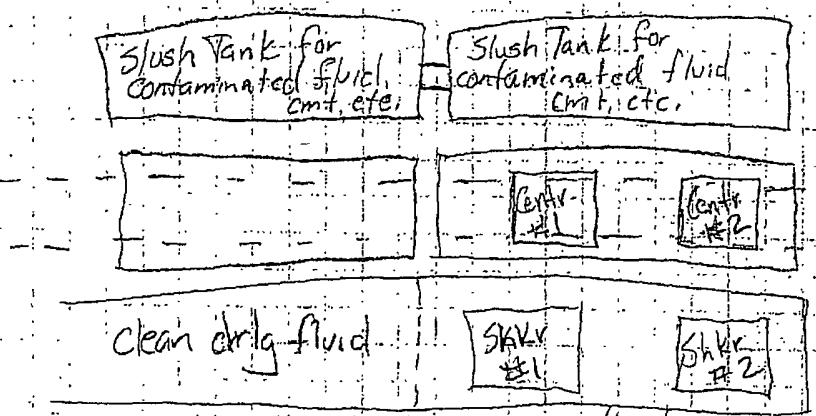 Slush Tank for
contaminated fluid,
cmt, etc.
Slush Tank for
contaminated fluid
cmt, etc.
Centr.
#1
Centr
#2
Clean drlg fluid
ShKr
#1
ShKr
#2